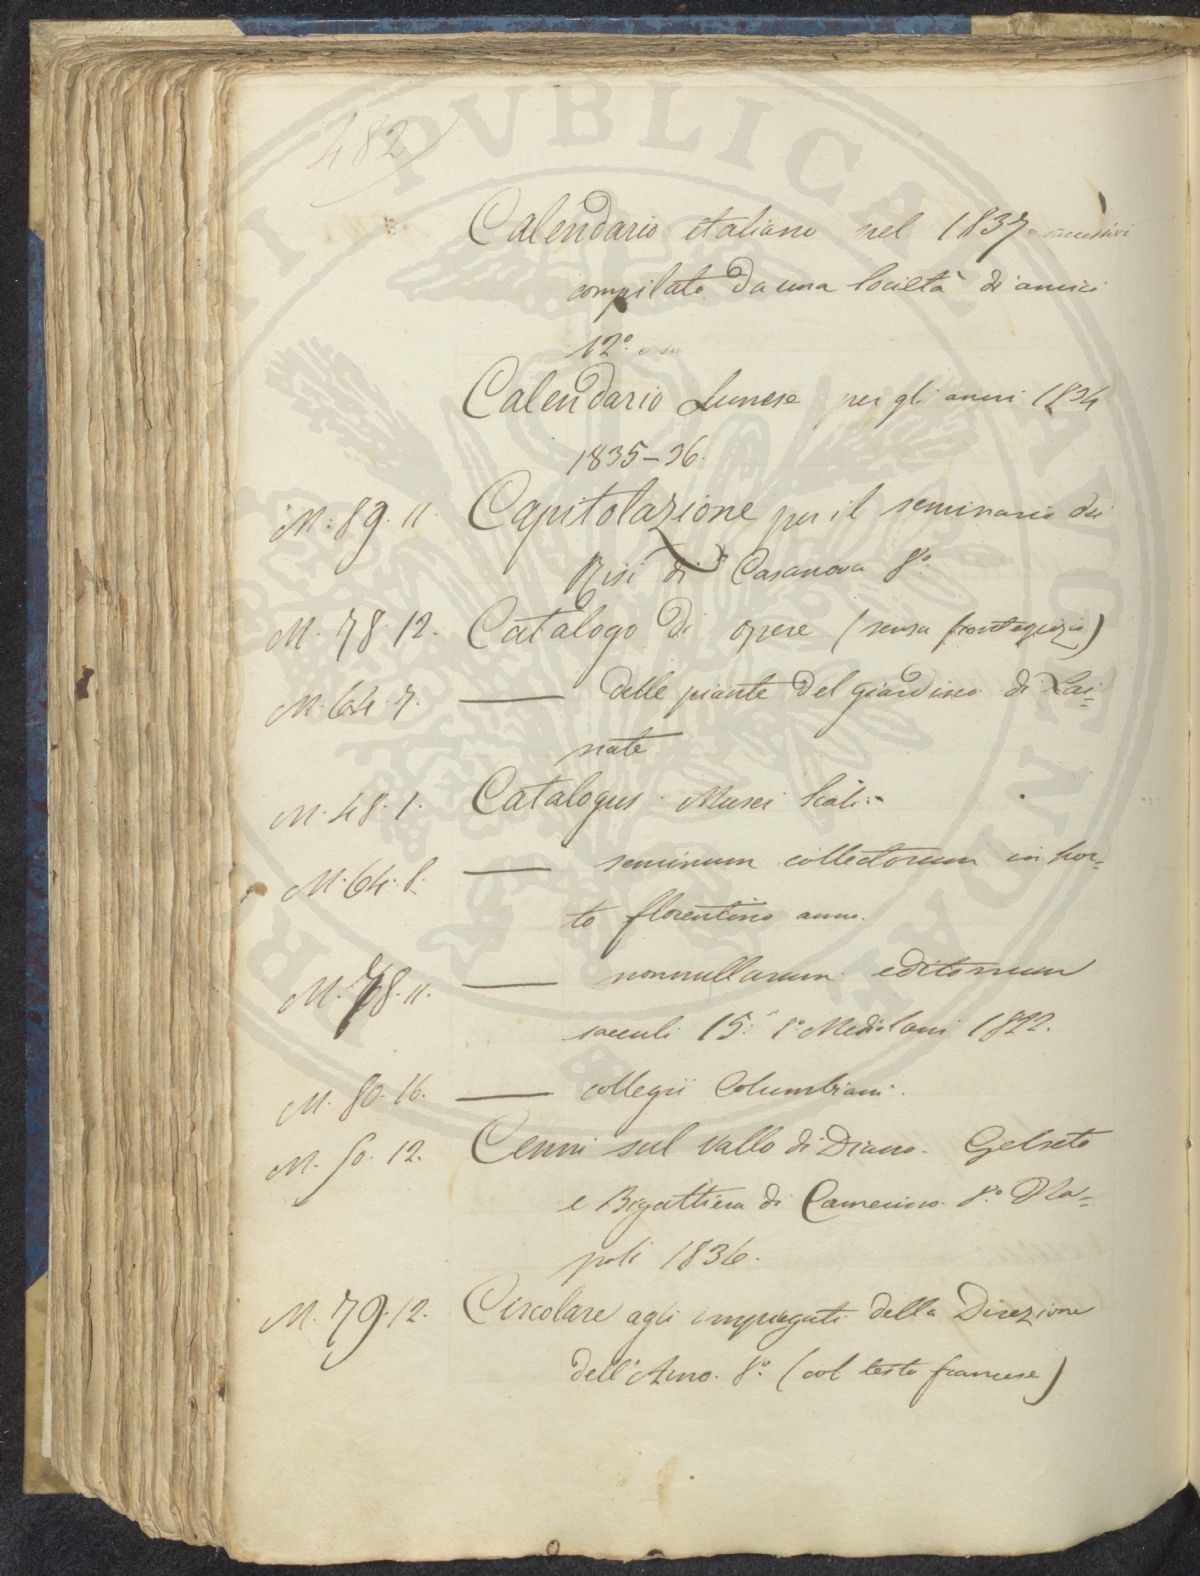 482
Calendario italiano nel 1837 e successivi
compilato da una Società di amici
12º
Calendario Lunese per gli anni 1834
1835-36.
M. 89. 11. Capitolazione per il seminario dei
Risi di Casanova 8º
M. 78. 12. Catalogo di opere (senza frontespizio)
M. 64. 7. —— delle piante del giardino di Lai-
nate
M. 48. 1. Catalogus Musei
M. 64. 8. —— seminum collectorum in hor-
to florentino anno.
M. 78. 11. —— nonnullarum editionum
saeculi 15. 8º Mediolani 1822.
M. 80. 16. —— collegii Columbiani.
M. 50. 12. Cenni sul vallo di Diano. Gelseto
e Bigattiera di Camerino. 8º Na-
poli 1836.
M. 79. 12. Circolare agli impiegati della Direzione
dell'Arno. 8º (col testo francese)